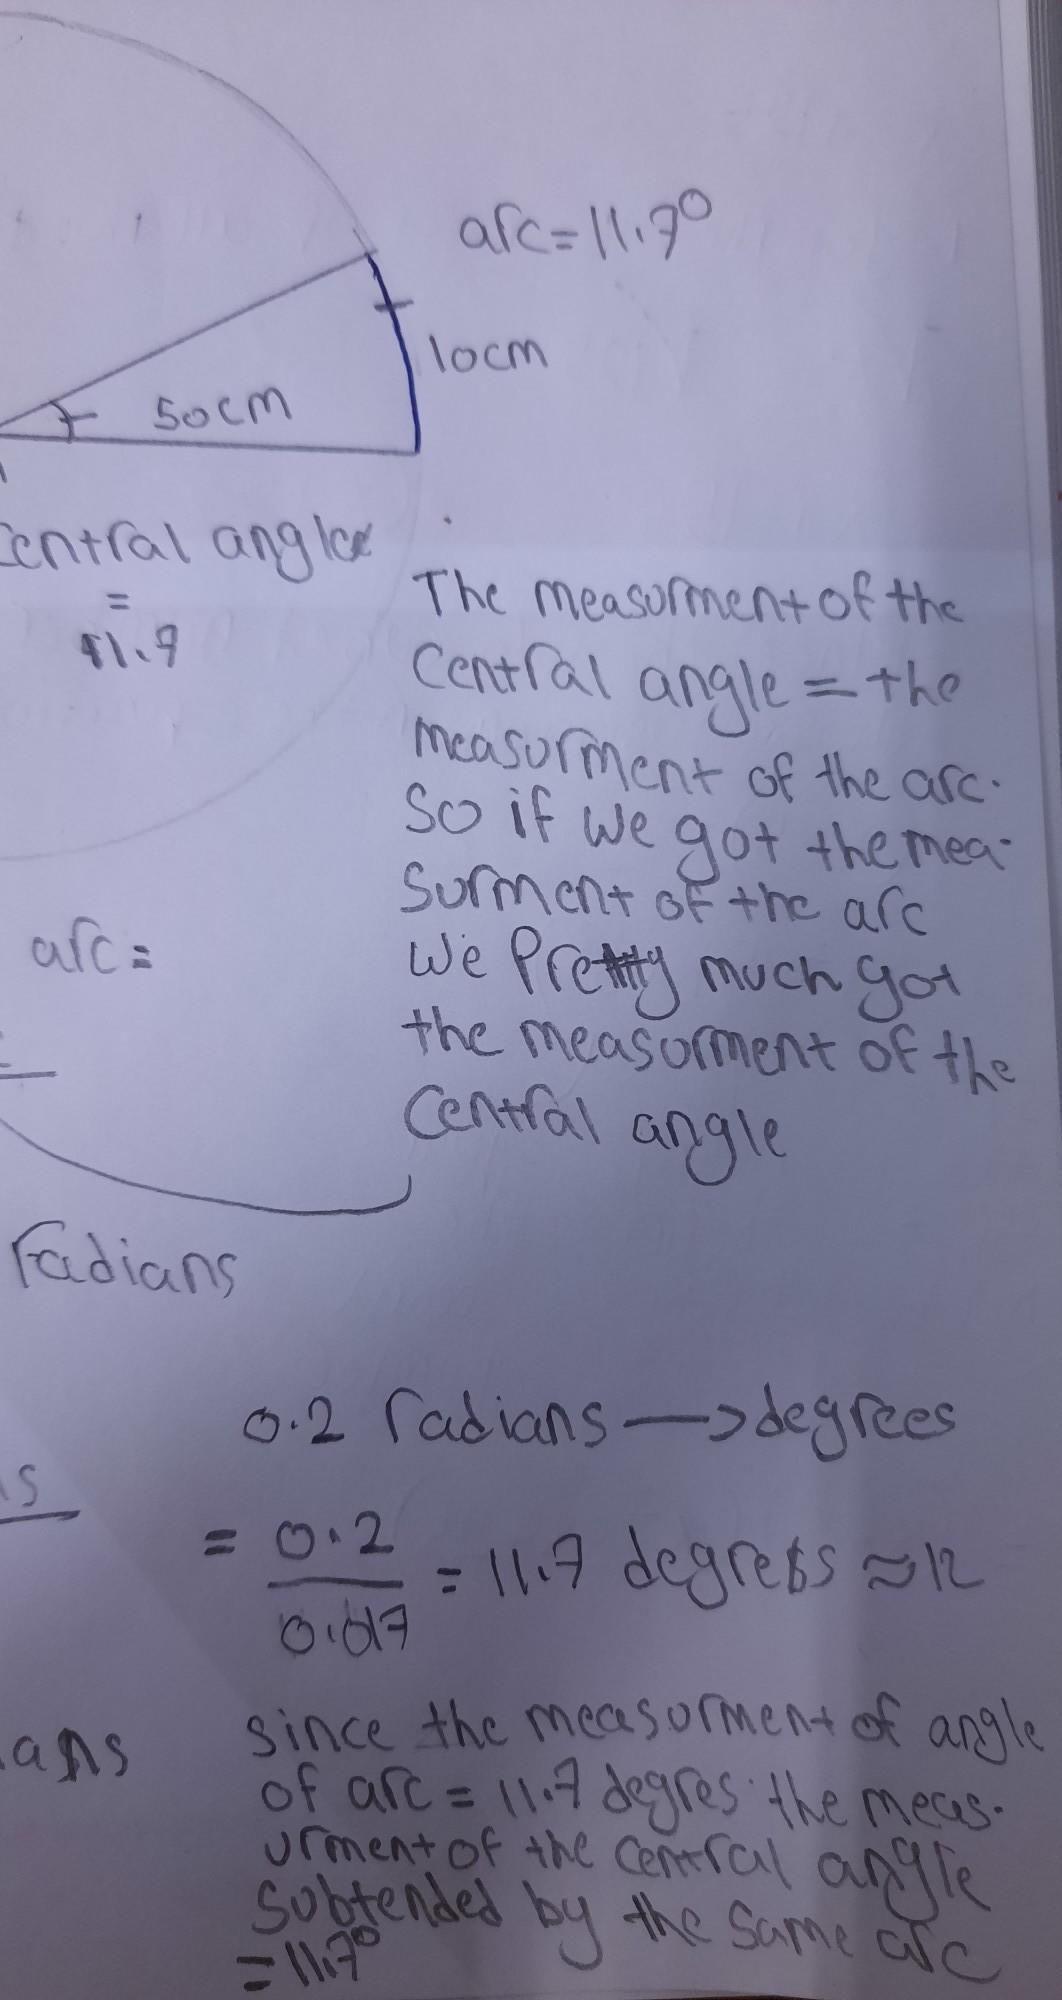 arc=11.7°
10cm
50cm
Central angle
=
11.7
The measurment of the
Central angle = the
measurment of the arc.
So if we got the mea-
surment of the arc
we Pretty much got
the measurment of the
Central angle
arc=
radians
0.2 radians → degrees
= 0.2
0.017
= 11.7 degrees ≈ 12
ans
since the measurment of angle
of arc = 11.7 degres. the meas-
urment of the central angle
subtended by the same arc
= 11.7°